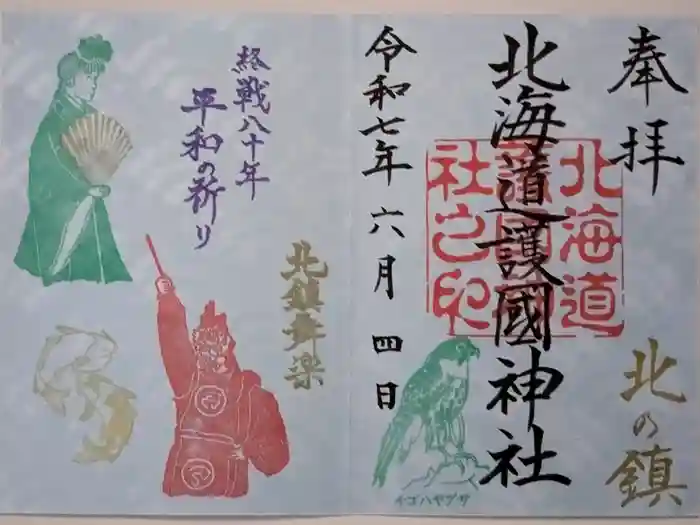 奉拝
北の鎮
北海道護國神社
北海道護國神社之印
シロハヤブサ
令和七年六月四日
北鎮舞楽
終戦八十年
平和の祈り